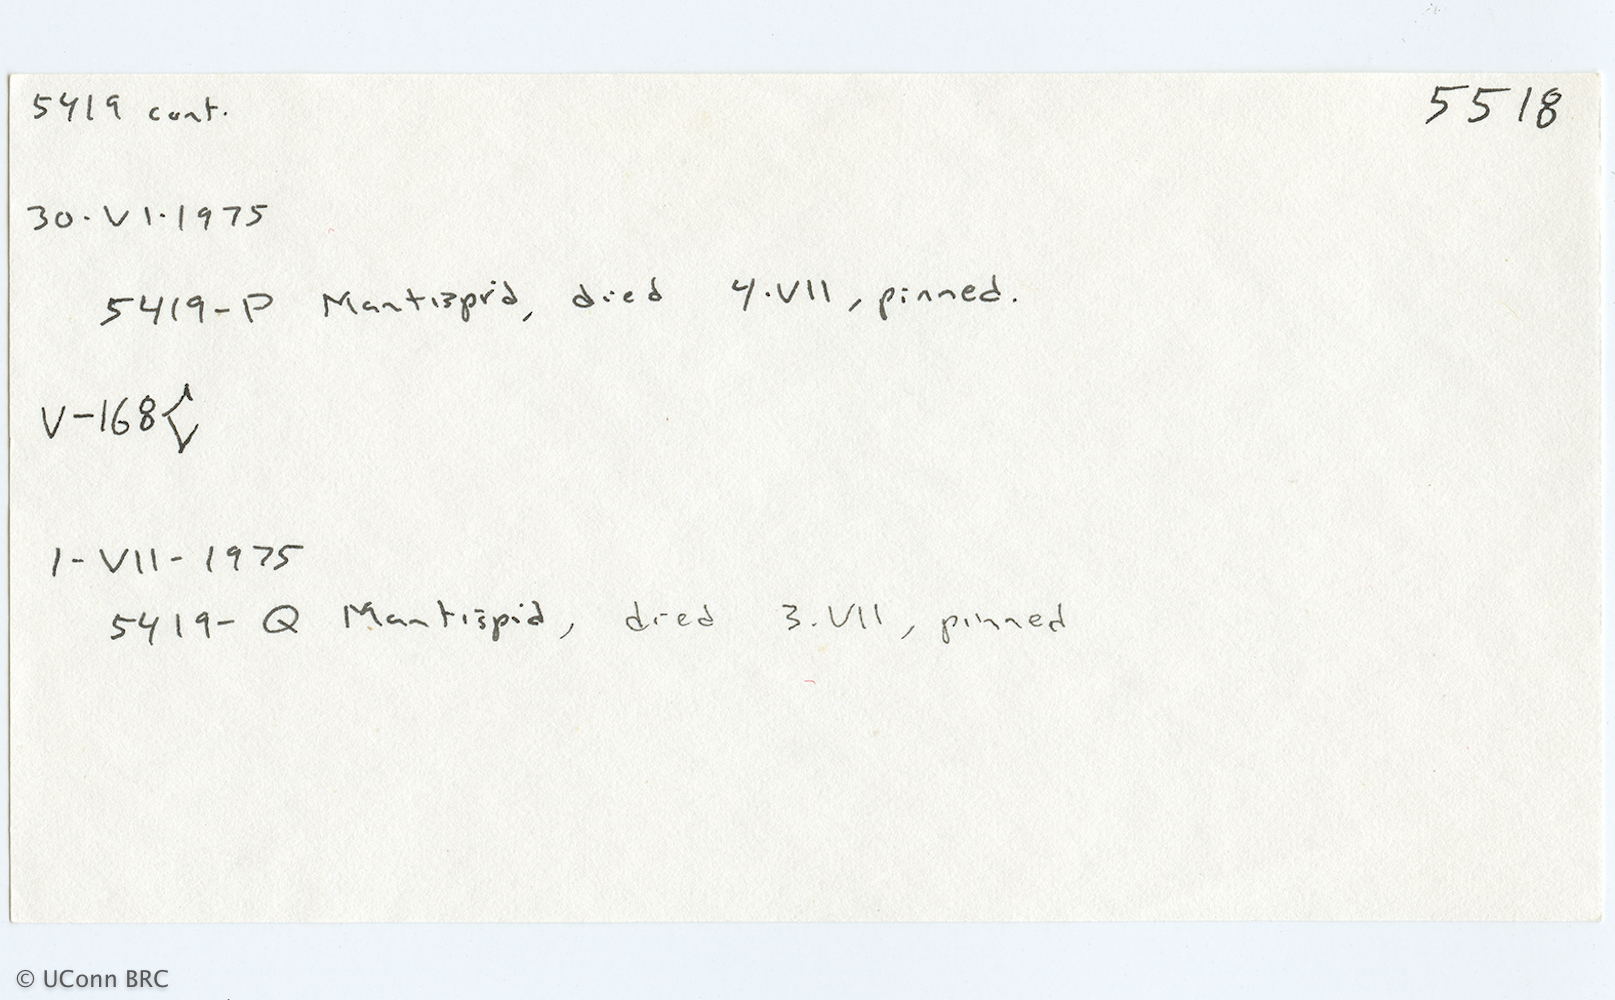 5419 cont. 5518
30.VI.1975
5419-P Mantispid, died 4.VII, pinned.
V-168
1-VII-1975
5419-Q Mantispid, died 3.VII, pinned
© UConn BRC